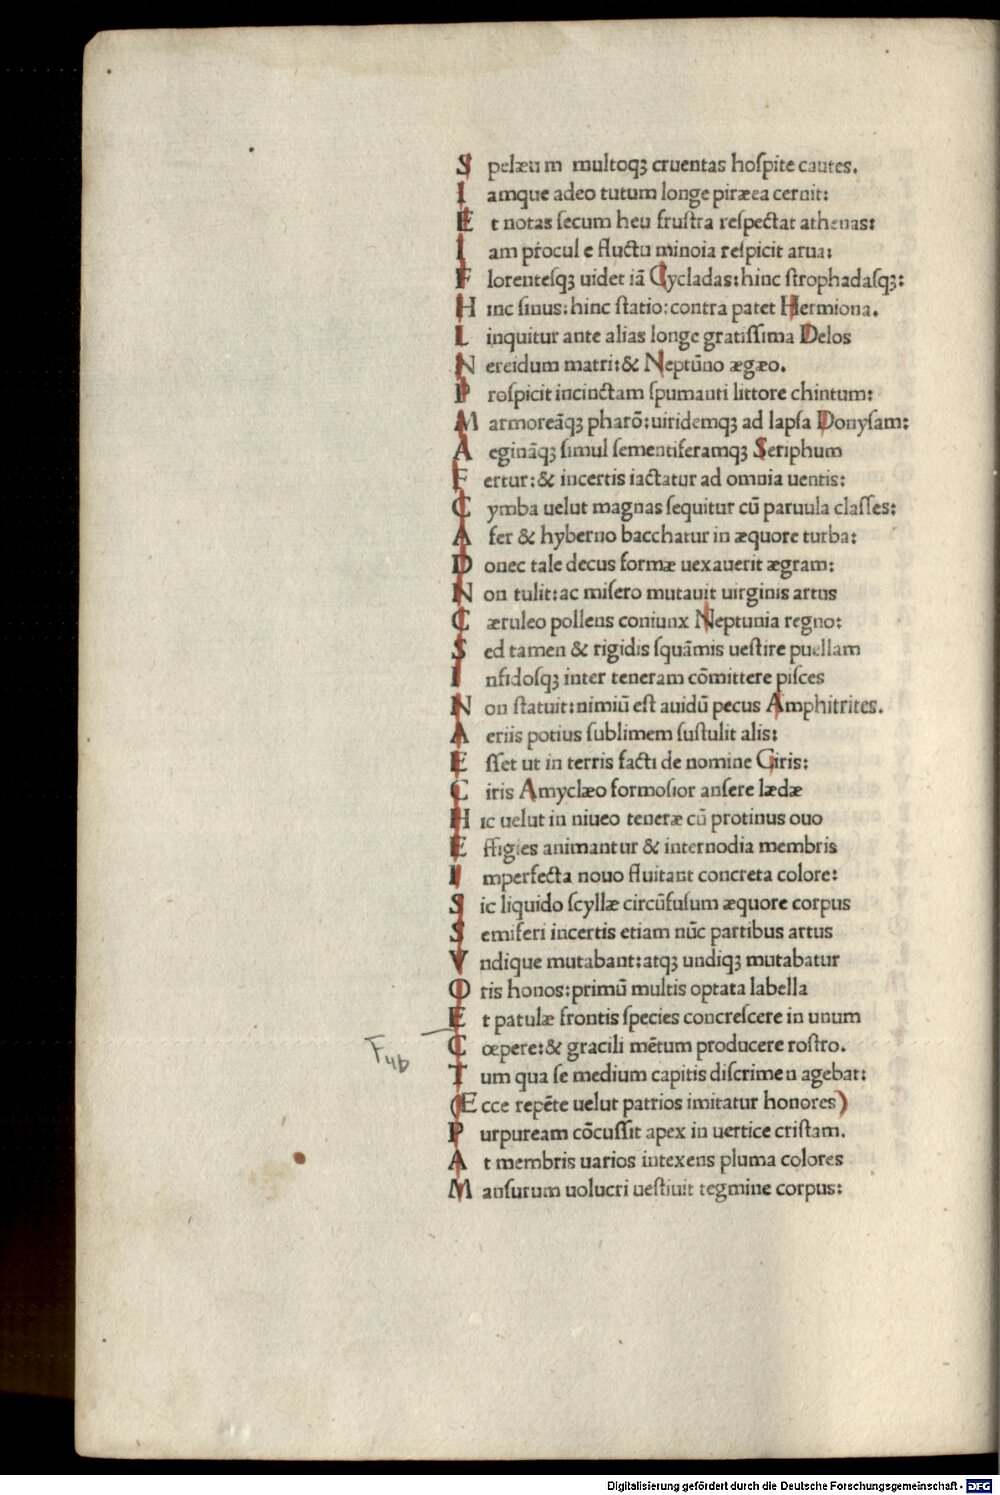 S pelæum multoqȝ cruentas hoſpite cautes.
I amque adeo tutum longe piræea cernit:
E t notas ſecum heu fruſtra reſpectat athenas:
I am procul e fluctu minoia reſpicit arua:
F lorenteſqȝ uidet iã Cycladas: hinc ſtrophadaſqȝ:
H inc ſinus: hinc ſtatio: contra patet Hermiona.
L inquitur ante alias longe gratiſſima Delos
N ereidum matri: & Neptūno ægæo.
P roſpicit incinctam ſpumanti littore chintum:
M armoreãqȝ pharõ: uiridemqȝ ad lapſa Donyſam:
A eginãqȝ ſimul ſementiferamqȝ Seriphum
F ertur: & incertis iactatur ad omnia uentis:
C ymba uelut magnas ſequitur cū paruula claſſes:
A fer & hyberno bacchatur in æquore turba:
D onec tale decus formæ uexauerit ægram:
N on tulit: ac miſero mutauit uirginis artus
C æruleo pollens coniunx Neptunia regno:
S ed tamen & rigidis ſquãmis ueſtire puellam
I nfidoſqȝ inter teneram cõmittere piſces
N on ſtatuit: nimiū eſt auidū pecus Amphitrites.
A eriis potius ſublimem ſuſtulit alis:
E ſſet ut in terris facti de nomine Ciris:
C iris Amyclæo formoſior anſere lædæ
H ic uelut in niueo teneræ cū protinus ouo
E ffigies animantur & internodia membris
I mperfecta nouo fluitant concreta colore:
S ic liquido ſcyllæ circūfuſum æquore corpus
S emiferi incertis etiam nūc partibus artus
V ndique mutabant: atqȝ undiqȝ mutabatur
O ris honos: primū multis optata labella
E t patulæ frontis ſpecies concreſcere in unum
C œpere: & gracili mētum producere roſtro.
T um qua ſe medium capitis diſcrimen agebat:
(E cce repēte uelut patrios imitatur honores)
P urpuream cõcuſſit apex in uertice criſtam.
A t membris uarios intexens pluma colores
M anſurum uolucri ueſtiuit tegmine corpus:
F4b
Digitalisierung gefördert durch die Deutsche Forschungsgemeinschaft - DFG